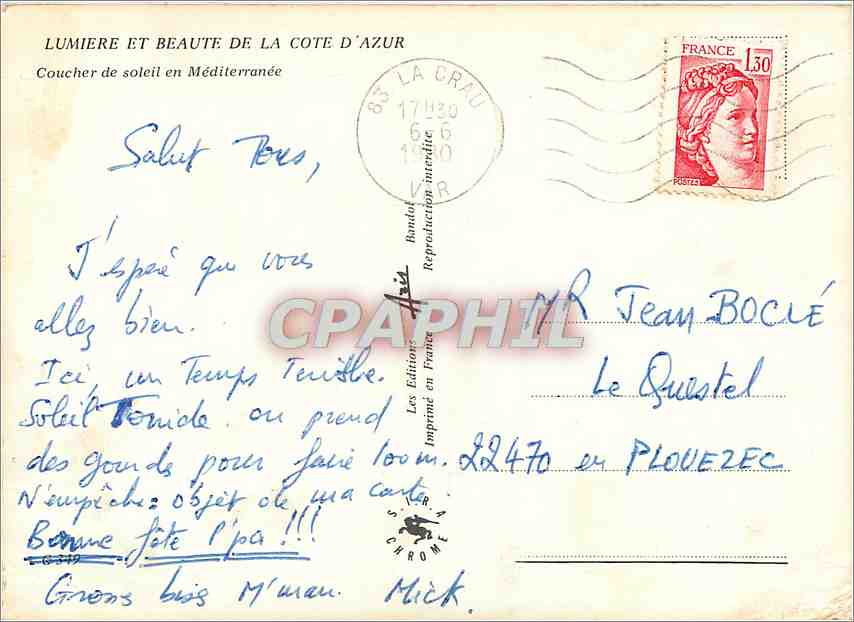 LUMIERE ET BEAUTE DE LA COTE D'AZUR
Coucher de soleil en Méditerranée
83 LA CRAU
17H30
6-6
1980
VAR
FRANCE
1,30
POSTES
Salut Tous,
J'espère que vous
allez bien.
Ici, un Temps Terrible.
Soleil Torride. on prend
des gourdes pour faire 100 m.
N'empêche: objet de ma carte.
Bonne fête l'pa !!!
G 349
Gross bises M'man. Mick.
Les Editions Aris Bandol
Imprimé en France Reproduction interdite
CPAPHIL
S.I.R.A.
CHROME
MR Jean BOCLÉ
Le Questel
22470 en PLOUEZEC